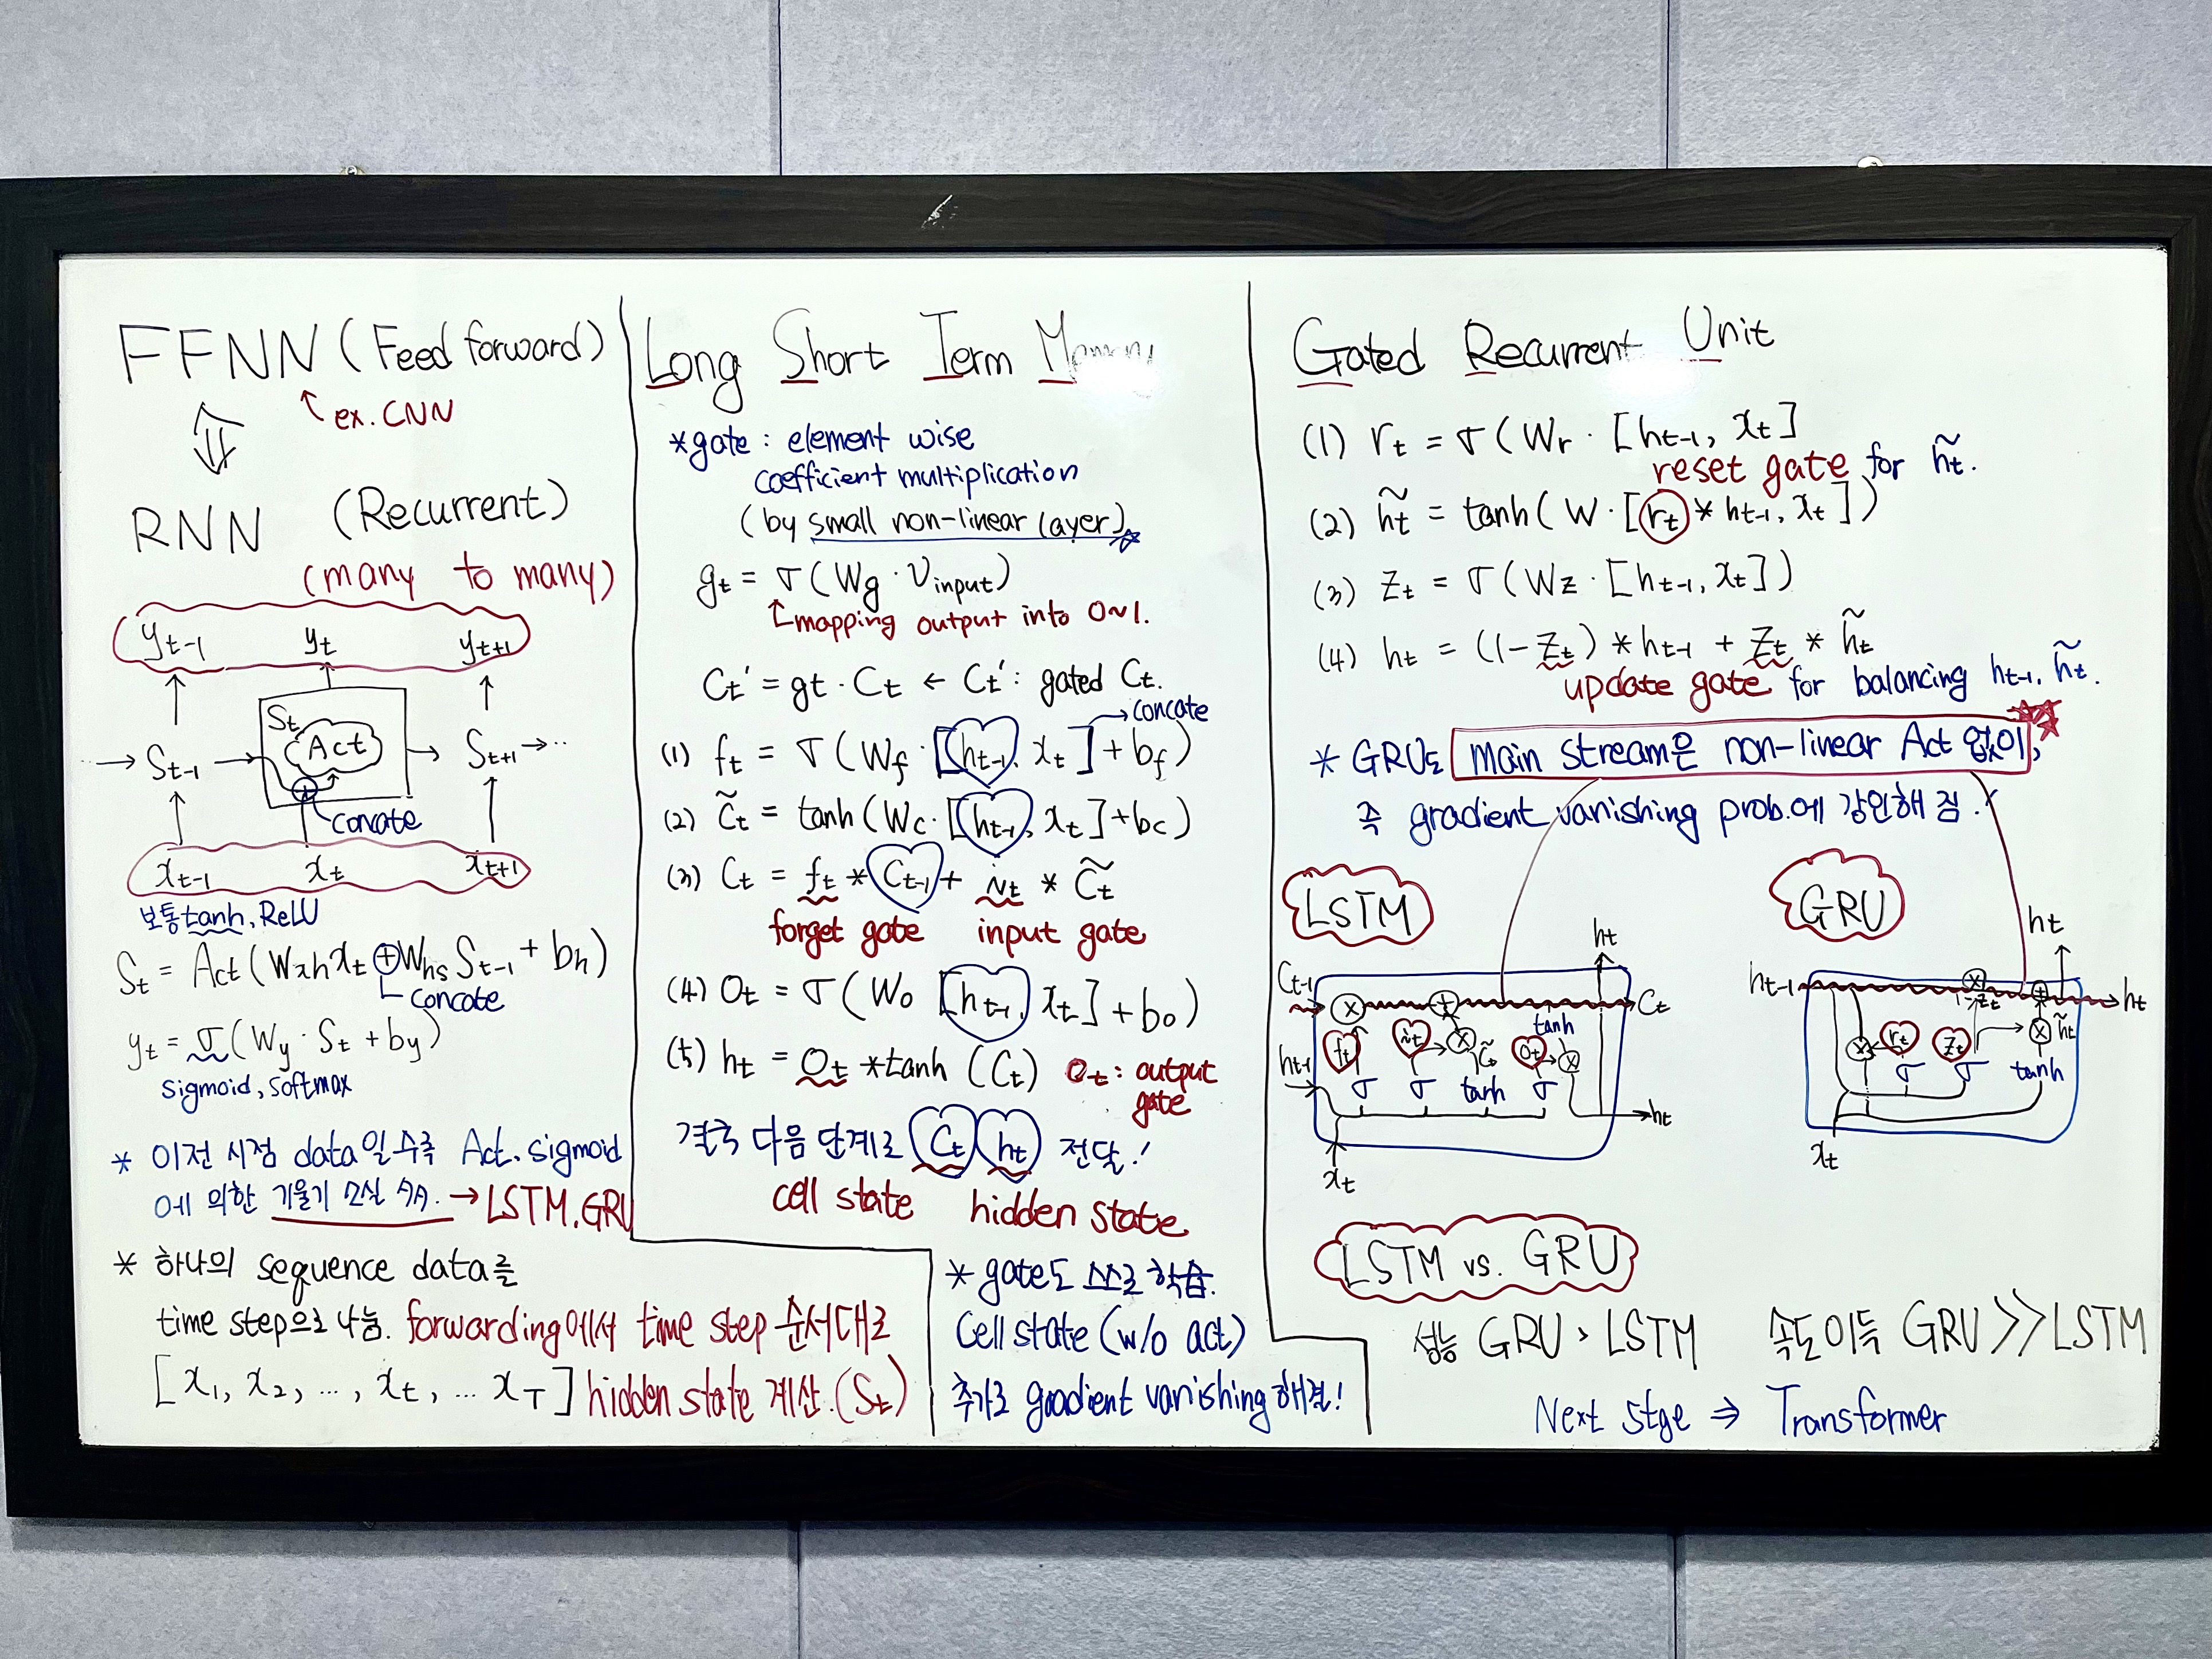 FFNN (Feed forward)
↑ ex. CNN
⇕
RNN (Recurrent)
(many to many)
y_{t-1} y_t y_{t+1}
S_t
Act
→ S_{t-1} → → S_{t+1} → ··
concate
x_{t-1} x_t x_{t+1}
보통 tanh, ReLU
S_t = Act(W_{xh}x_t ⊕ W_{hs}S_{t-1} + b_h)
concate
y_t = σ(W_y · S_t + b_y)
sigmoid, softmax
* 이전 시점 data일수록 Act. sigmoid
에 의한 기울기 소실 → LSTM. GRU
* 하나의 sequence data를
time step으로 나눔. forwarding에서 time step 순서대로
[x_1, x_2, ..., x_t, ... x_T] hidden state 계산.(S_t)
Long Short Term Memory
*gate : element wise
coefficient multiplication
(by small non-linear layer)☆
g_t = σ(W_g · V_{input})
↑ mapping output into 0~1.
C_t' = g_t · C_t ← C_t' : gated C_t.
→ concate
(1) f_t = σ(W_f · [h_{t-1}, x_t] + b_f)
(2) C̃_t = tanh(W_c · [h_{t-1}, x_t] + b_c)
(3) C_t = f_t * C_{t-1} + i_t * C̃_t
forget gate input gate
(4) O_t = σ(W_o [h_{t-1}, x_t] + b_o)
(5) h_t = O_t * tanh (C_t) O_t : output
gate
결국 다음 단계로 C_t h_t 전달!
cell state hidden state
* gate도 스스로 학습.
Cell state (w/o act)
추가로 gradient vanishing 해결!
Gated Recurrent Unit
(1) r_t = σ(W_r · [h_{t-1}, x_t]
reset gate for h̃_t.
(2) h̃_t = tanh(W · [r_t * h_{t-1}, x_t])
(3) Z_t = σ(W_z · [h_{t-1}, x_t])
(4) h_t = (1-Z_t) * h_{t-1} + Z_t * h̃_t
update gate for balancing h_{t-1}, h̃_t.
* GRU도 main stream은 non-linear Act 없이,
즉 gradient vanishing prob.에 강인해 짐!
LSTM
h_t
C_{t-1} × + C_t
tanh
f_t i_t × C̃_t O_t ×
h_{t-1} σ σ tanh σ
h_t
x_t
GRU
h_t
h_{t-1} × + h_t
1-z_t
× r_t z_t × h̃_t
σ σ tanh
x_t
LSTM vs. GRU
성능 GRU > LSTM 속도이득 GRU ≫ LSTM
Next stge ⇒ Transformer